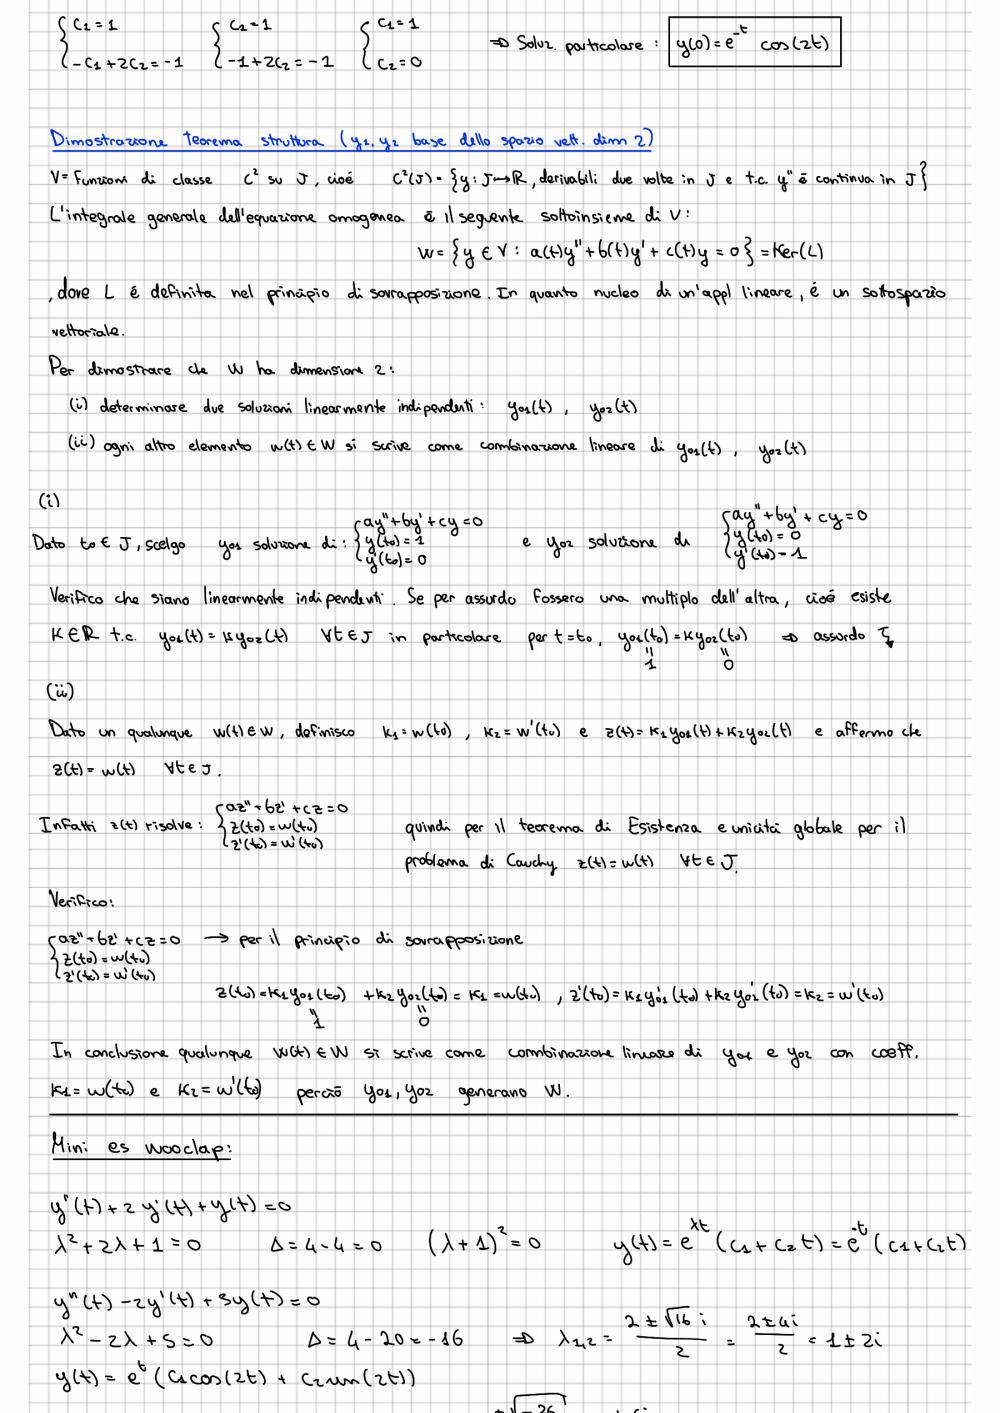 {c₁=1 {c₁=1 {c₁=1 ⇒ Soluz. particolare : y(0)=e^-t cos(2t)
-c₁+2c₂=-1 -1+2c₂=-1 c₂=0
Dimostrazione teorema struttura (y₁,y₂ base dello spazio vett. dim 2)
V= Funzioni di classe C² su J, cioé C²(J)={y:J→R, derivabili due volte in J e t.c. y" é continua in J}
L'integrale generale dell'equazione omogenea é il seguente sottoinsieme di V:
W={y∈V: a(t)y"+b(t)y'+c(t)y=0}=Ker(L)
, dove L é definita nel principio di sovrapposizione. In quanto nucleo di un'appl lineare, é un sottospazio
vettoriale.
Per dimostrare che W ha dimensione 2:
(i) determinare due soluzioni linearmente indipendenti: y₀₁(t), y₀₂(t)
(ii) ogni altro elemento w(t)∈W si scrive come combinazione lineare di y₀₁(t), y₀₂(t)
(i)
Dato t₀∈J, scelgo y₀₁ soluzione di: {ay"+by'+cy=0 y(t₀)=1 y'(t₀)=0 e y₀₂ soluzione di {ay"+by'+cy=0 y(t₀)=0 y'(t₀)=1
Verifico che siano linearmente indipendenti. Se per assurdo fossero una multiplo dell'altra, cioé esiste
K∈R t.c. y₀₁(t)=Ky₀₂(t) ∀t∈J in particolare per t=t₀, y₀₁(t₀)=Ky₀₂(t₀) ⇒ assurdo
" "
1 0
(ii)
Dato un qualunque w(t)∈W, definisco K₁=w(t₀), K₂=w'(t₀) e z(t)=K₁y₀₁(t)+K₂y₀₂(t) e affermo che
z(t)=w(t) ∀t∈J.
Infatti z(t) risolve: {az"+bz'+cz=0 z(t₀)=w(t₀) z'(t₀)=w'(t₀) quindi per il teorema di Esistenza e unicitá globale per il
problema di Cauchy z(t)=w(t) ∀t∈J.
Verifico:
{az"+bz'+cz=0 → per il principio di sovrapposizione
z(t₀)=w(t₀)
z'(t₀)=w'(t₀)
z(t₀)=K₁y₀₁(t₀)+K₂y₀₂(t₀)=K₁=w(t₀), z'(t₀)=K₁y₀₁'(t₀)+K₂y₀₂'(t₀)=K₂=w'(t₀)
" "
1 0
In conclusione qualunque w(t)∈W si scrive come combinazione lineare di y₀₁ e y₀₂ con coeff.
K₁=w(t₀) e K₂=w'(t₀) perció y₀₁,y₀₂ generano W.
Mini es wooclap:
y"(t)+2y'(t)+y(t)=0
λ²+2λ+1=0 Δ=4-4=0 (λ+1)²=0 y(t)=e^λt(c₁+c₂t)=e^-t(c₁+c₂t)
y"(t)-2y'(t)+5y(t)=0
λ²-2λ+5=0 Δ=4-20=-16 ⇒ λ₁,₂=(2±√16 i)/2=(2±4i)/2=1±2i
y(t)=e^t(c₁cos(2t)+c₂sin(2t))